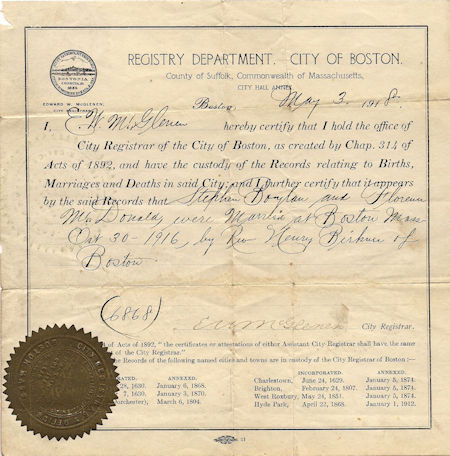 REGISTRY DEPARTMENT. CITY OF BOSTON.
County of Suffolk, Commonwealth of Massachusetts,
CITY HALL ANNEX
BOSTONIA
CONDITA A.D.
1630.
EDWARD W. McGLENEN,
CITY REGISTRAR.
Boston, May 3, 1918.
I, E. W. McGlenen hereby certify that I hold the office of
City Registrar of the City of Boston, as created by Chap. 314 of
Acts of 1892, and have the custody of the Records relating to Births,
Marriages and Deaths in said City; and I further certify that it appears
by the said Records that Stephen Boylan and Florence
McDonald, were Married at Boston Mass
Oct 30 - 1916, by Rev Henry Birkner of
Boston
(6868)
E W McGlenen City Registrar.
of Acts of 1892, "the certificates or attestations of either Assistant City Registrar shall have the same
of the City Registrar."
the Records of the following named cities and towns are in custody of the City Registrar of Boston:—
ANNEXED.
28, 1630. January 6, 1868.
7, 1630. January 3, 1870.
orchester), March 6, 1804.
INCORPORATED. ANNEXED.
Charlestown, June 24, 1629. January 5, 1874.
Brighton, February 24, 1807. January 5, 1874.
West Roxbury, May 24, 1851. January 5, 1874.
Hyde Park, April 22, 1868. January 1, 1912.